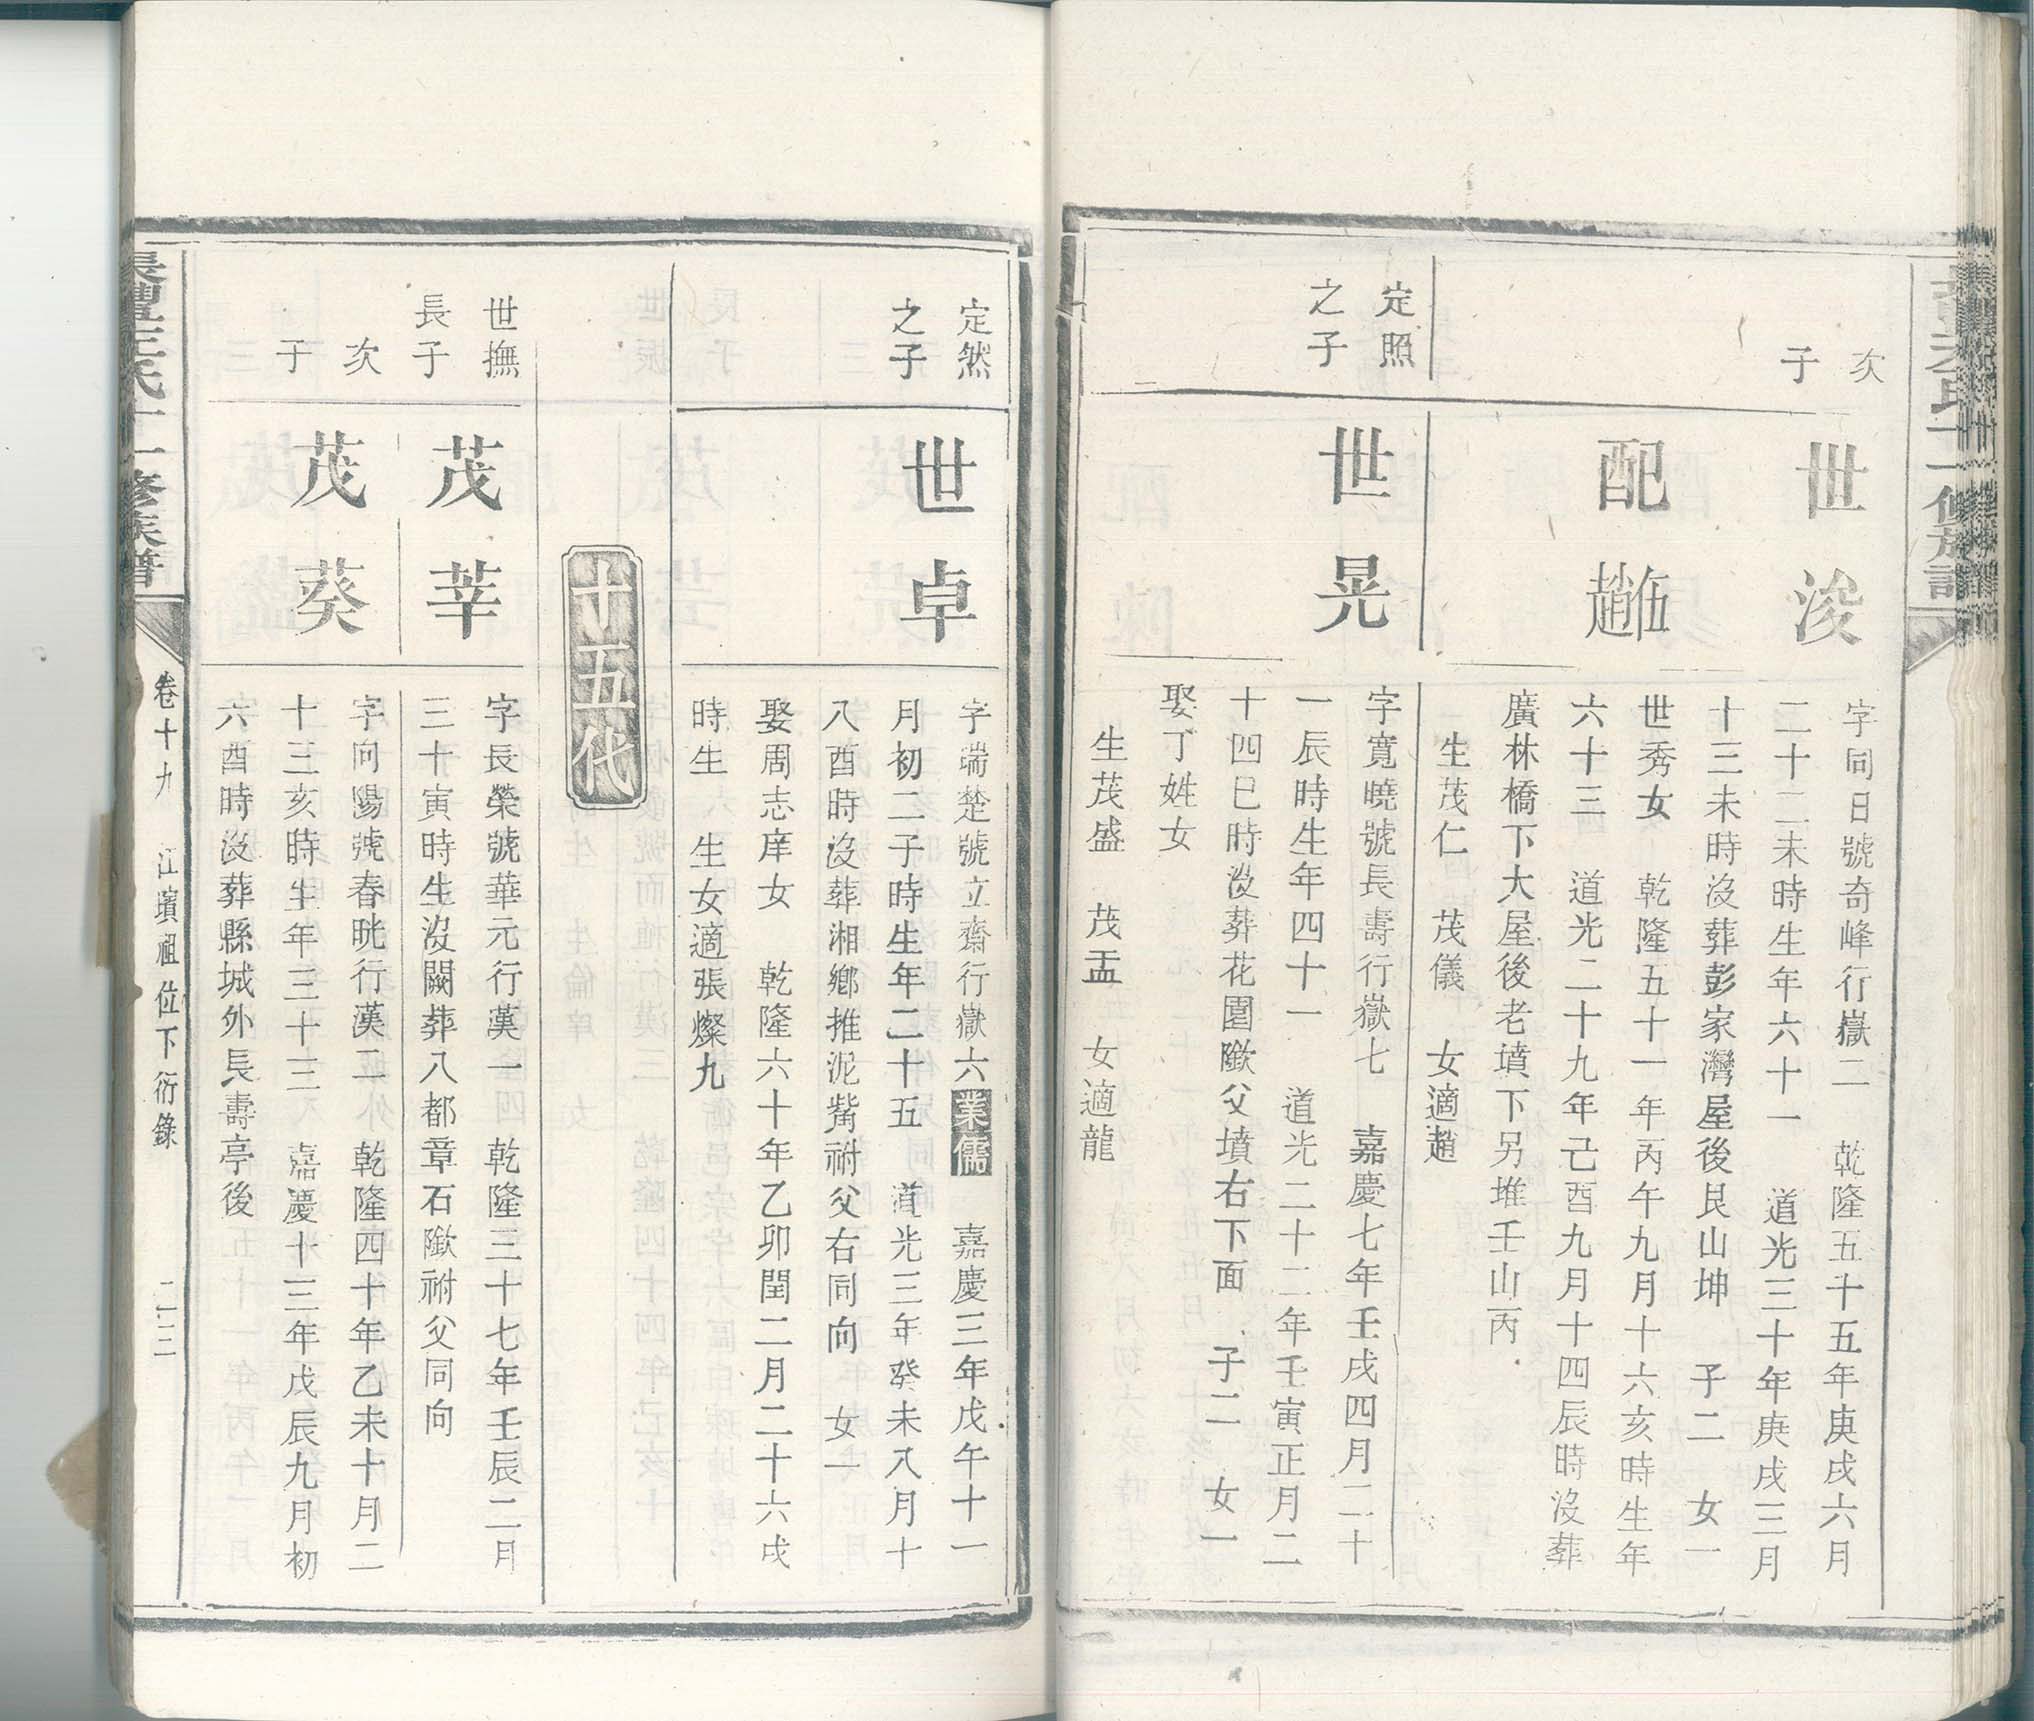 次
子
世浚
字同日號奇峰行嶽二　乾隆五十五年庚戌六月
二十二未時生年六十一　道光三十年庚戌三月
十三未時沒葬彭家灣屋後艮山坤　子二　女一
配伍趙
世秀女　乾隆五十一年丙午九月十六亥時生年
六十三　道光二十九年己酉九月十四辰時沒葬
廣林橋下大屋後老墳下另堆壬山丙
生茂仁　茂儀　女適趙
定照
之子
世晃
字寬曉號長壽行嶽七　嘉慶七年壬戌四月二十
一辰時生年四十一　道光二十二年壬寅正月二
十四巳時沒葬花園隞父墳右下面　子二　女一
娶丁姓女
生茂盛　茂盂　女適龍
定然
之子
世卓
字端楚號立齋行嶽六業儒　嘉慶三年戊午十一
月初二子時生年二十五　道光三年癸未八月十
八酉時沒葬湘鄉推泥觜祔父右同向　女一
娶周志庠女　乾隆六十年乙卯閏二月二十六戌
時生　生女適張燦九
十五代
世撫
長子
茂莘
字長榮號華元行漢一　乾隆三十七年壬辰二月
三十寅時生沒闕葬八都章石隞祔父同向
次
子
茂葵
字向陽號春晄行漢二　乾隆四十年乙未十月二
十三亥時生年三十三　嘉慶十三年戊辰九月初
六酉時沒葬縣城外長壽亭後
王氏十一修族譜
卷十九　江濱祖位下衍錄　二三